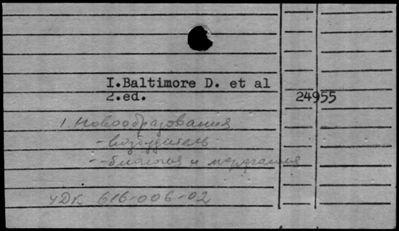 I.Baltimore D. et al
2.ed. 24955
1 Новообразования
- возбудитель
- биология и
УДК 616-006-02